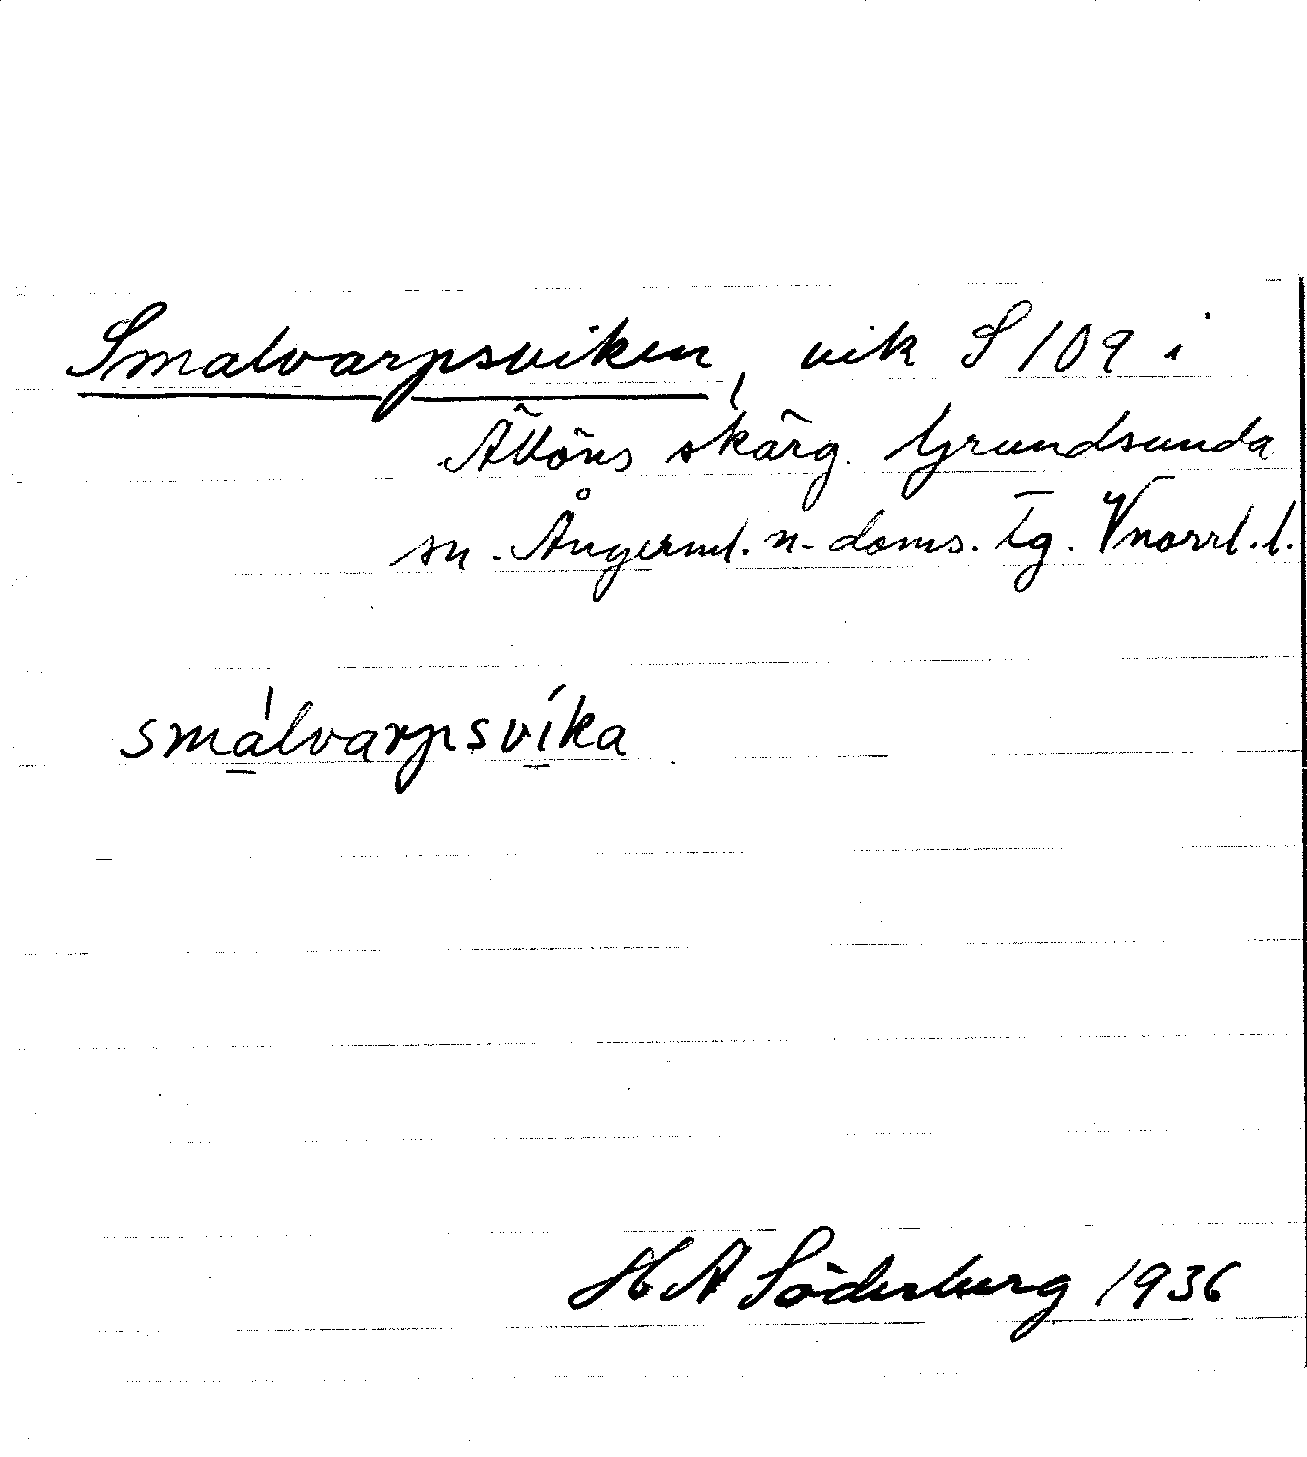 Smalvarpsviken, vik S 109 i
Ällöns skärg. Grundsunda
sn. Ångerml. n. doms. tg. Vnorrl. l.
smálvarpsvíka
HA Söderberg 1936